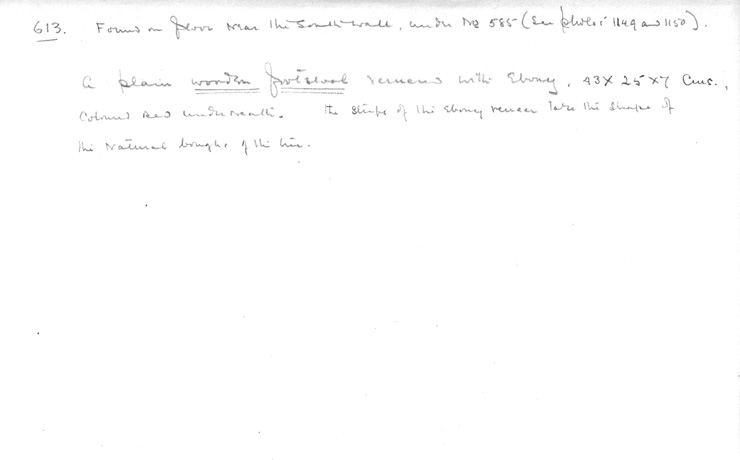 613. Found on floor near the South wall, under No 585 (See photos: 1149 and 1150).
A plain wooden footstool veneered with Ebony, 43 X 25 X 7 Cms.,
Coloured red underneath. The strips of the Ebony veneer take the shape of
the natural boughs of the tree.